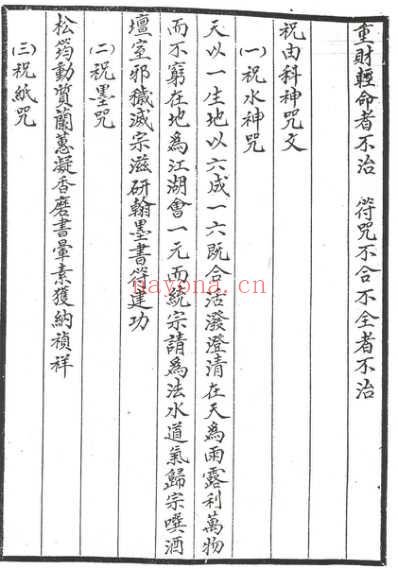 重財輕命者不治　符咒不合不全者不治
祝由科神咒文
(一)祝水神咒
天以一生地以六成一六既合活潑澄清在天為雨露利萬物
而不窮在地為江湖會一元而統宗請為法水道氣歸宗噀酒
壇室邪穢滅宗滋研翰墨書符建功
(二)祝墨咒
松筠動質蘭蕙凝香磨書暈素獲納禎祥
(三)祝紙咒
nayona.cn